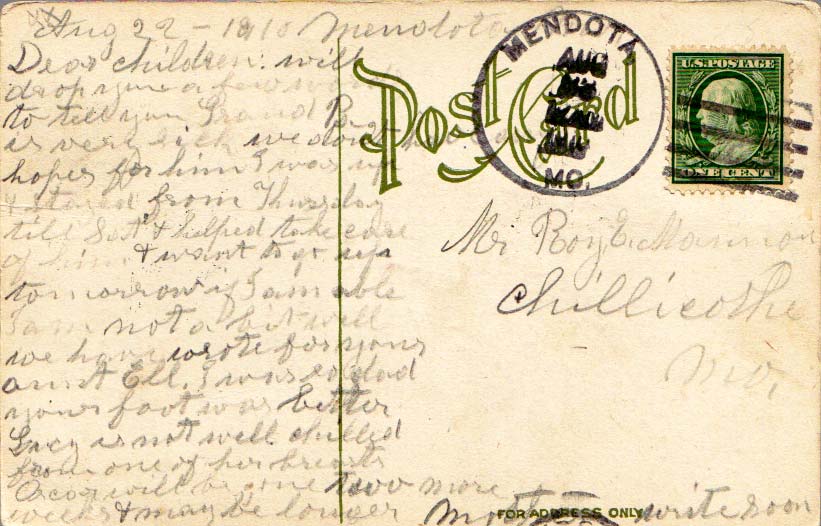 Aug 22 - 1910 Mendota
Dear children: will
drop you a few
to tell you Grand Pa
is very sick we don't have
hopes for him I was up
& stayed from Thursday
till Sat & helped to take care
of him & want to go up
tomorrow if I am able
I am not a bit well
we have wrote for your
aunt Ell. I was so glad
your foot was better
Lucy is not well chilled
from one of her breasts
Oscar will be one two more
weeks & may be longer
Mother write soon
Post Card
MENDOTA
AUG
MO.
U.S. POSTAGE
ONE CENT
Mr Roy E. Mannon
Chillicothe
Mo.
FOR ADDRESS ONLY